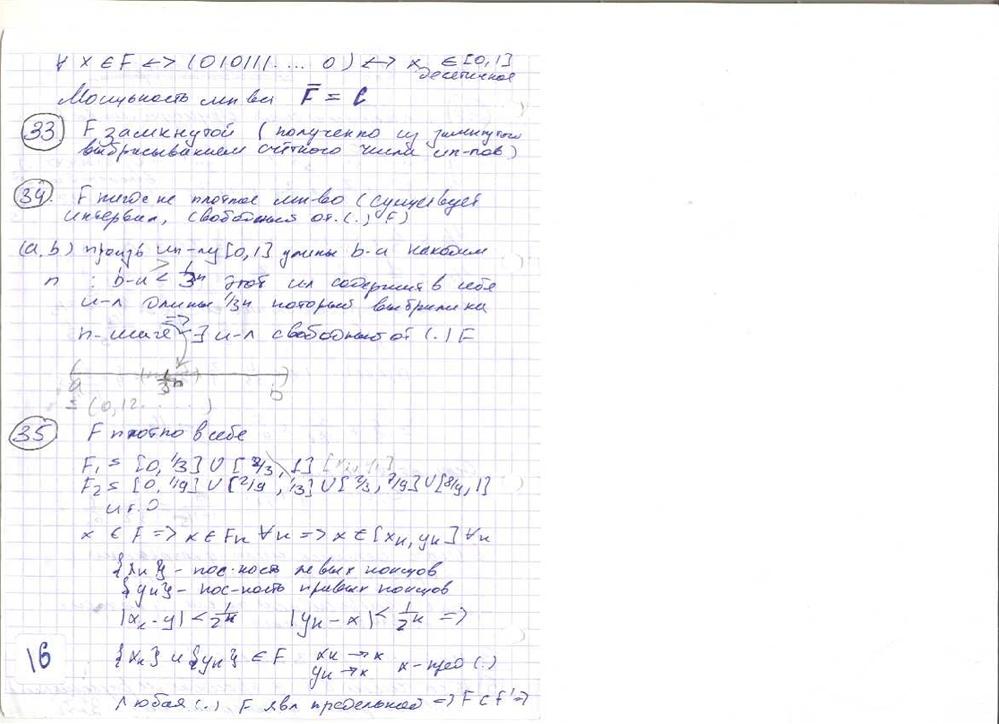 ∀ x ∈ F <-> (010111.... 0) <-> x ∈ [0,1]
десятичное
Мощность мн-ва F̄ = C
33 F замкнутой (полученно из замкнутого
выбрасыванием счётного числа ин-лов)
34. F нигде не плотное мн-во (существует
интервал, свободный от (.) F)
(a, b) произв ин-лу [0,1] длины b-a находим
n : b-a > 1/3ⁿ этот ил содержит в себе
и-л длины 1/3ⁿ который выбрали на
n-шаге => ∃ и-л свободный от (.) F
a 1/3ⁿ b
= (0,12.....)
35 F плотно в себе
F₁ = [0, 1/3] ∪ [2/3, 1]
F₂ = [0, 1/9] ∪ [2/9, 1/3] ∪ [2/3, 7/9] ∪ [8/9, 1]
и т.д
x ∈ F => x ∈ Fₙ ∀n => x ∈ [xₙ, yₙ] ∀n
{xₙ} - пос-ность левых концов
{yₙ} - пос-ность правых концов
|xₙ-y| < 1/2ⁿ |yₙ-x| < 1/2ⁿ =>
{xₙ} и {yₙ} ∈ F xₙ → x x-пред (.)
yₙ → x
16
Любая (.) F явл предельной => F ⊂ F' =>